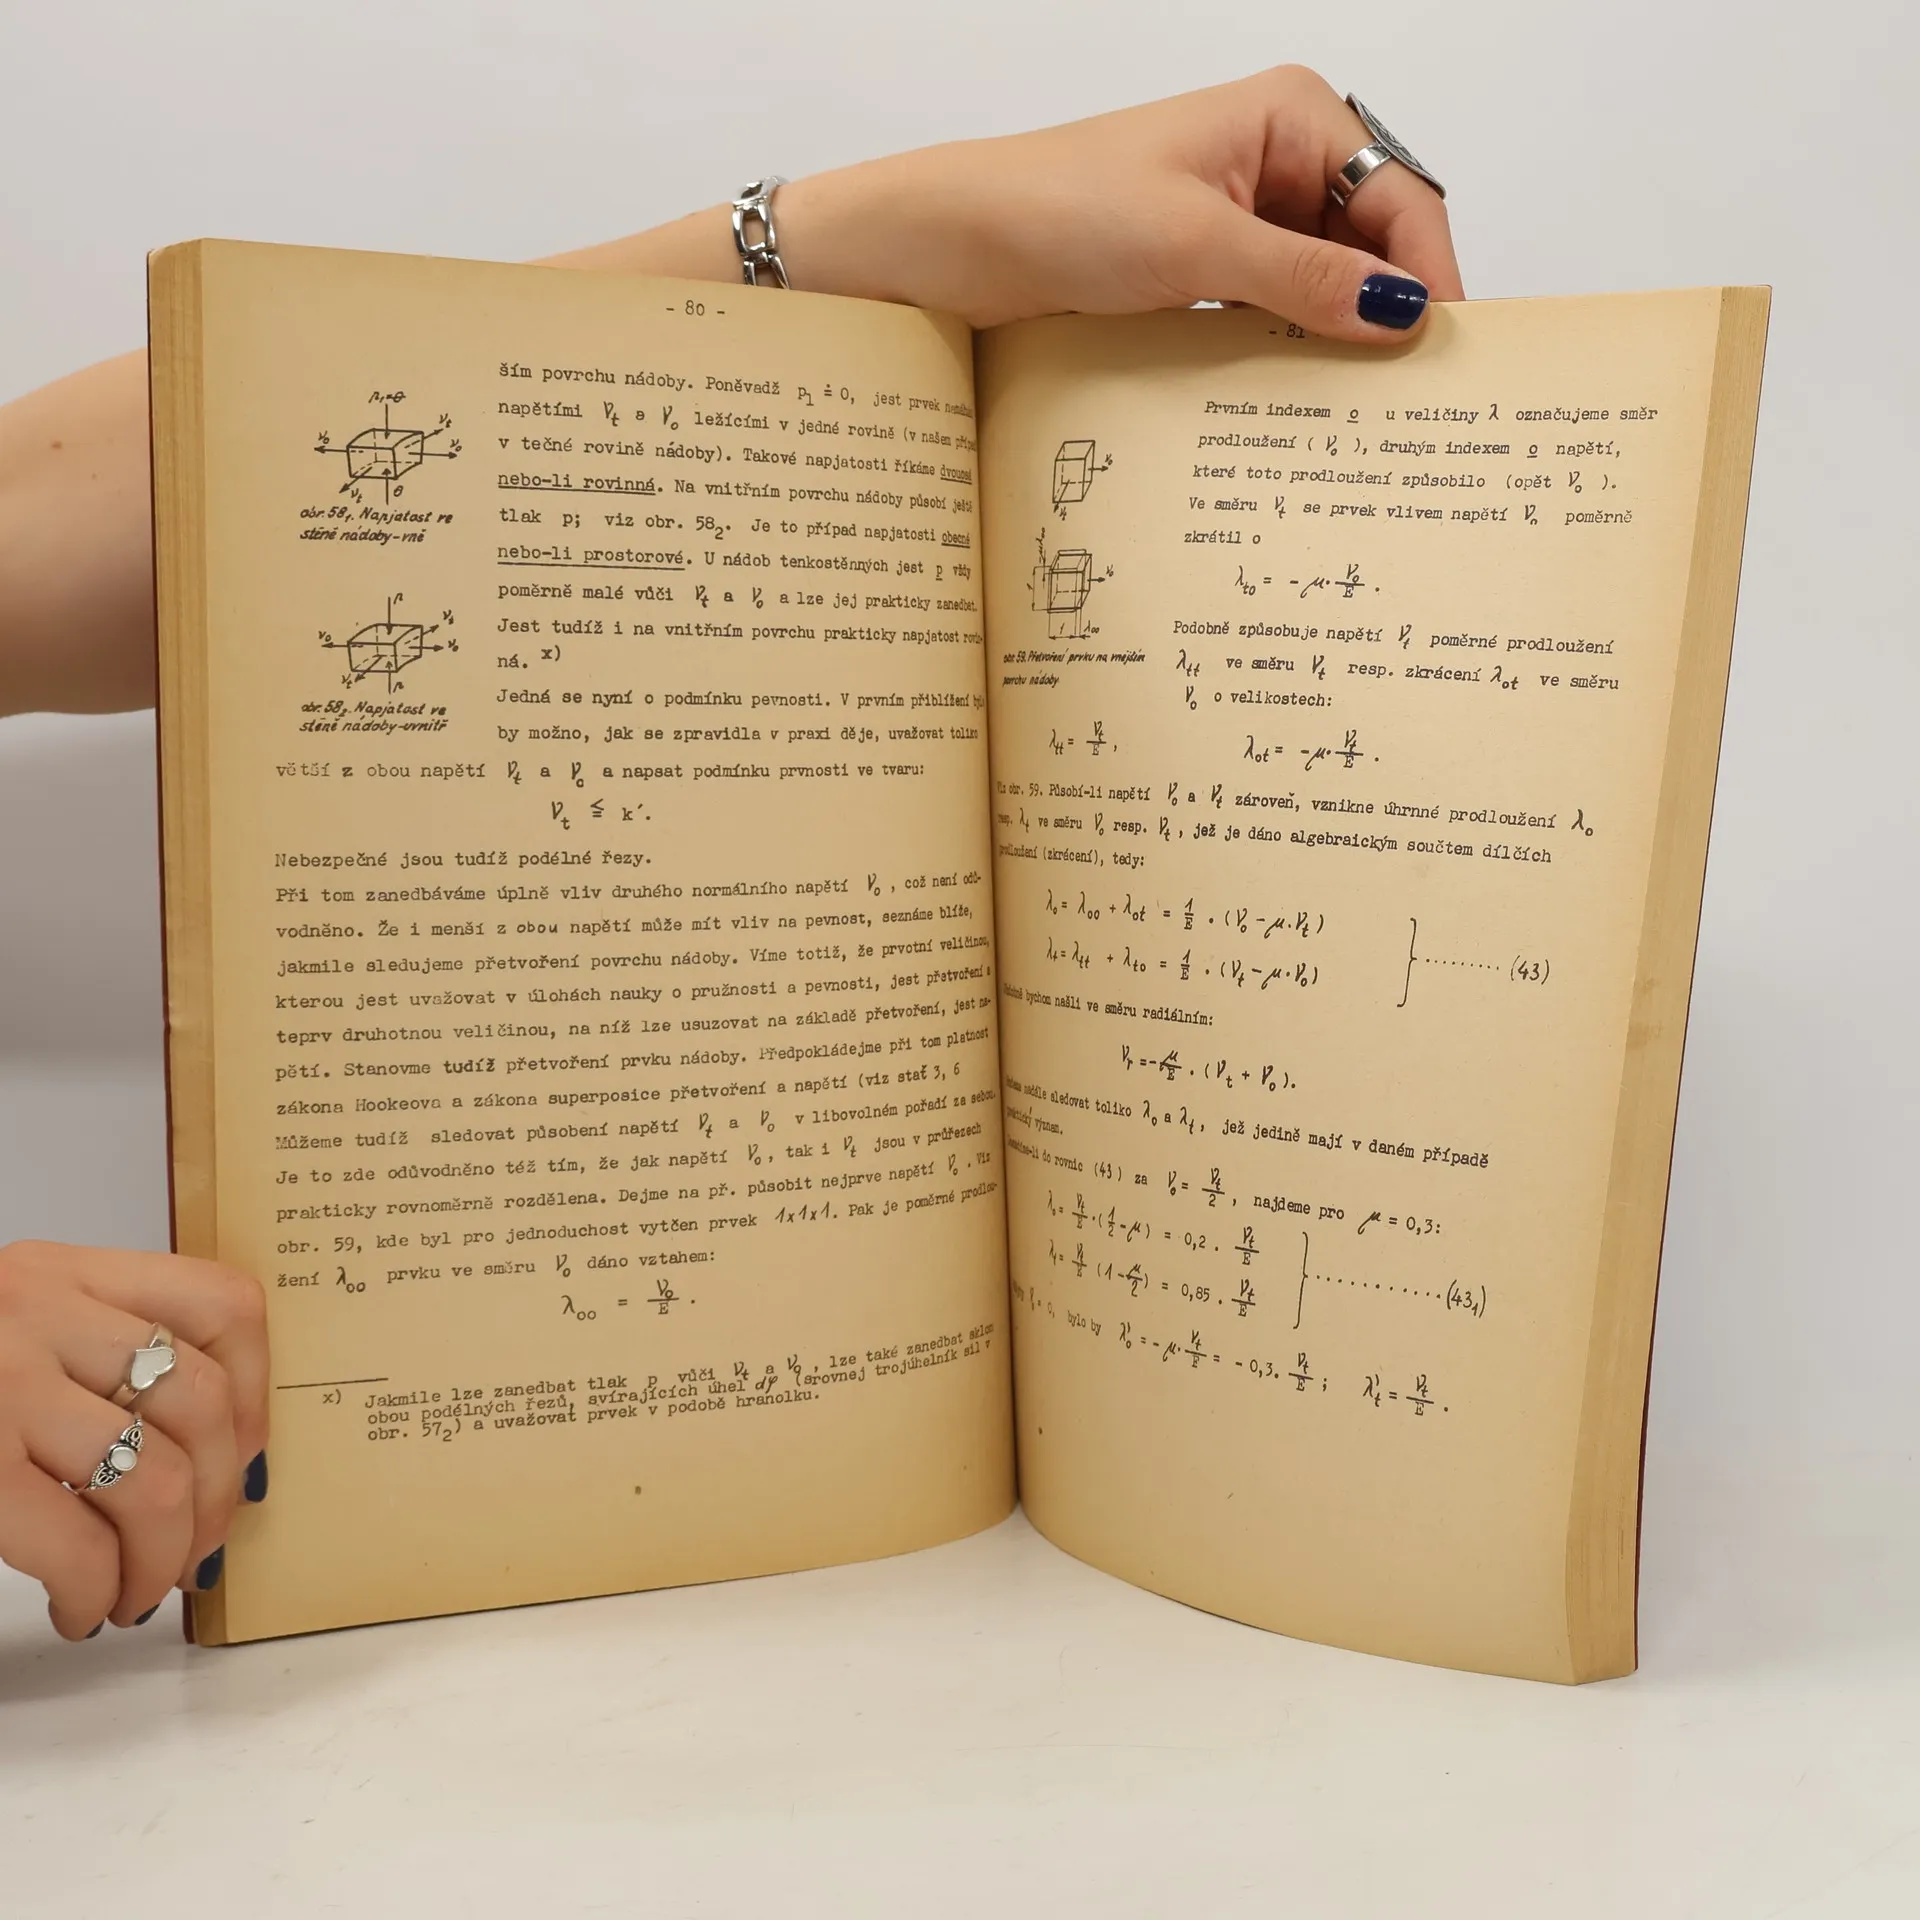 - 80 -
ším povrchu nádoby. Poněvadž p₁ ≐ 0, jest prvek
napětími ν_t a ν_o ležícími v jedné rovině (v našem
v tečné rovině nádoby). Takové napjatosti říkáme dvouosé
nebo-li rovinná. Na vnitřním povrchu nádoby působí ještě
tlak p; viz obr. 58₂. Je to případ napjatosti obecné
nebo-li prostorové. U nádob tenkostěnných jest p vždy
poměrně malé vůči ν_t a ν_o a lze jej prakticky zanedbat.
Jest tudíž i na vnitřním povrchu prakticky napjatost rovin-
ná. x)
p₁=0
ν_t
ν_o
ν_o
ν_t
0
obr. 58₁. Napjatost ve
stěně nádoby-vně
p
ν_t
ν_o
ν_o
ν_t
p
obr. 58₂. Napjatost ve
stěně nádoby-uvnitř
Jedná se nyní o podmínku pevnosti. V prvním přiblížení
by možno, jak se zpravidla v praxi děje, uvažovat toliko
větší z obou napětí ν_t a ν_o a napsat podmínku prvnosti ve tvaru:
ν_t ≦ k′.
Nebezpečné jsou tudíž podélné řezy.
Při tom zanedbáváme úplně vliv druhého normálního napětí ν_o, což není odů-
vodněno. Že i menší z obou napětí může mít vliv na pevnost, seznáme blíže,
jakmile sledujeme přetvoření povrchu nádoby. Víme totiž, že prvotní veličinou,
kterou jest uvažovat v úlohách nauky o pružnosti a pevnosti, jest přetvoření a
teprv druhotnou veličinou, na níž lze usuzovat na základě přetvoření, jest na-
pětí. Stanovme tudíž přetvoření prvku nádoby. Předpokládejme při tom platnost
zákona Hookeova a zákona superposice přetvoření a napětí (viz stať 3, 6
Můžeme tudíž sledovat působení napětí ν_t a ν_o v libovolném pořadí za sebou.
Je to zde odůvodněno též tím, že jak napětí ν_o, tak i ν_t jsou v průřezech
prakticky rovnoměrně rozdělena. Dejme na př. působit nejprve napětí ν_o. Viz
obr. 59, kde byl pro jednoduchost vytčen prvek 1x1x1. Pak je poměrné prodlou-
žení λ_oo prvku ve směru ν_o dáno vztahem:
λ_oo = ν_o/E .
x) Jakmile lze zanedbat tlak p vůči ν_t a ν_o, lze také zanedbat sklon
obou podélných řezů, svírajících úhel dφ (srovnej trojúhelník sil v
obr. 57₂) a uvažovat prvek v podobě hranolku.
- 81
Prvním indexem o u veličiny λ označujeme směr
prodloužení ( ν_o ), druhým indexem o napětí,
které toto prodloužení způsobilo (opět ν_o ).
Ve směru ν_t se prvek vlivem napětí ν_o poměrně
zkrátil o
λ_to = - μ· ν_o/E .
ν_o
ν_t
ν_o
1
λ_oo
obr. 59. Přetvoření prvku na vnějším
povrchu nádoby
Podobně způsobuje napětí ν_t poměrné prodloužení
λ_tt ve směru ν_t resp. zkrácení λ_ot ve směru
ν_o o velikostech:
λ_tt = ν_t/E , λ_ot = -μ· ν_t/E .
Viz obr. 59. Působí-li napětí ν_o a ν_t zároveň, vznikne úhrnné prodloužení λ_o
resp. λ_t ve směru ν_o resp. ν_t, jež je dáno algebraickým součtem dílčích
prodloužení (zkrácení), tedy:
λ_o = λ_oo + λ_ot = 1/E . (ν_o - μ.ν_t)
λ_t = λ_tt + λ_to = 1/E . (ν_t - μ·ν_o) } ......... (43)
bychom našli ve směru radiálním:
ν_r = - μ/E . (ν_t + ν_o).
nadále sledovat toliko λ_o a λ_t, jež jedině mají v daném případě
praktický význam.
do rovnic (43) za ν_o = ν_t/2, najdeme pro μ = 0,3:
λ_o = ν_t/E . (1/2 - μ) = 0,2 . ν_t/E
λ_t = ν_t/E (1 - μ/2) = 0,85 . ν_t/E } .......... (43₁)
ν_o = 0, bylo by λ′_o = - μ· ν_t/E = - 0,3. ν_t/E ; λ′_t = ν_t/E .